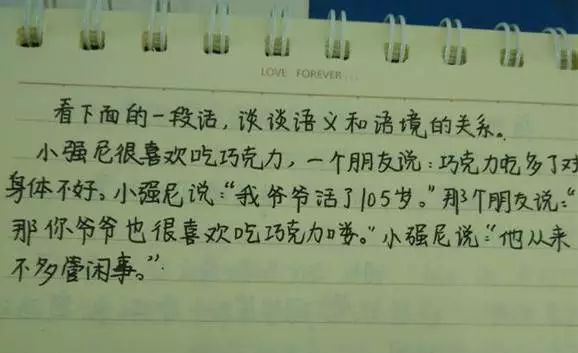 LOVE FOREVER...
看下面的一段话，谈谈语义和语境的关系。
小强尼很喜欢吃巧克力，一个朋友说：巧克力吃多了对
身体不好。小强尼说：“我爷爷活了105岁。”那个朋友说：“
那你爷爷也很喜欢吃巧克力喽。”小强尼说：“他从来
不多管闲事。”